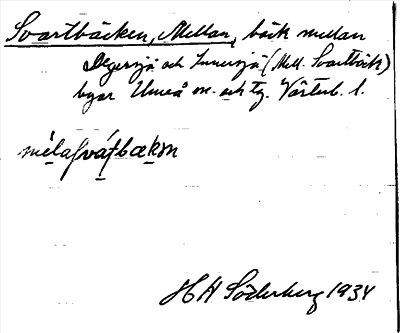 Svartbäcken, Mellan, bäck mellan
Degersjö och Innersjö (Mell. Svartbäck)
byar Umeå sn. och tg. Västerb. l.
mèlaſvátbækən
H H Söderberg 1934